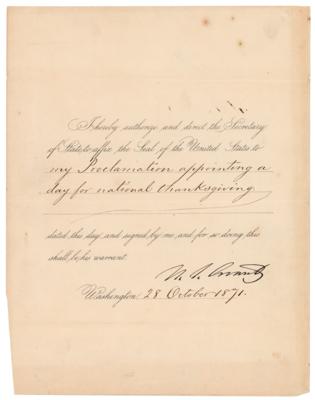 I hereby authorize and direct the Secretary
of State to affix the Seal of the United States to
my Proclamation appointing a
day for national thanksgiving
dated this day, and signed by me, and for so doing this
shall be his warrant.
U. S. Grant
Washington 28 October 1871.